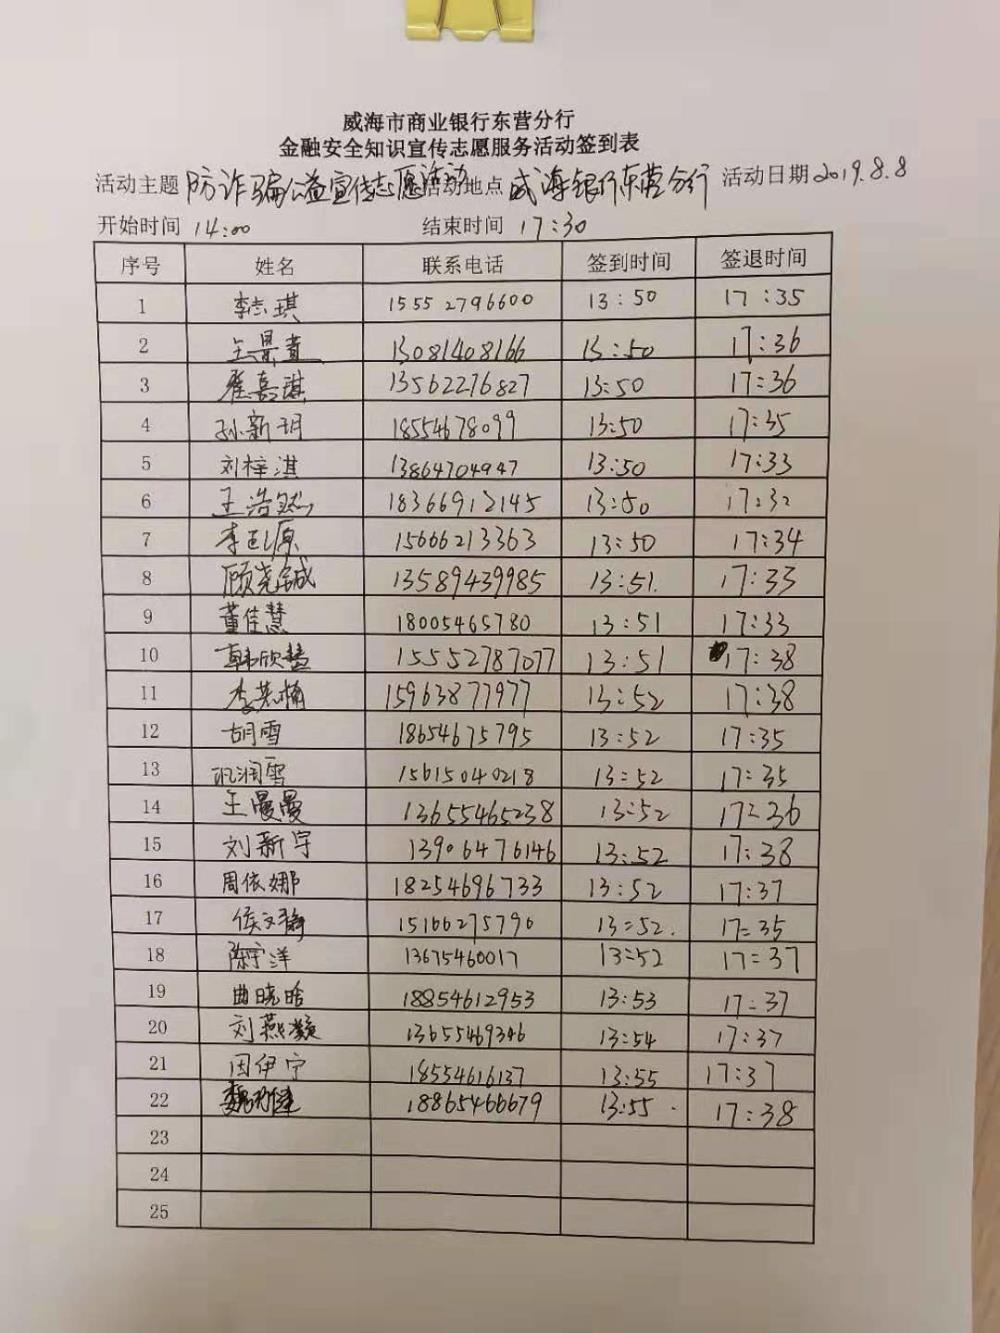 威海市商业银行东营分行
金融安全知识宣传志愿服务活动签到表
活动主题 防诈骗公益宣传志愿活动 活动地点 威海银行东营分行 活动日期 2019.8.8
开始时间 14:00 结束时间 17:30
序号 姓名 联系电话 签到时间 签退时间
1 李志琪 15552796600 13:50 17:35
2 13081408166 13:50 17:36
3 翟嘉琪 13562276827 13:50 17:36
4 孙新玥 18554678099 13:50 17:35
5 刘梓淇 13864704947 13:50 17:33
6 王浩然 18366912145 13:50 17:32
7 15666213363 13:50 17:34
8 顾尧诚 13589439985 13:51. 17:33
9 董佳慧 18005465780 13:51 17:33
10 韩欣慧 15552787077 13:51 17:38
11 15963877977 13:52 17:38
12 胡雪 18654675795 13:52 17:35
13 巩润雪 15615040218 13:52 17:35
14 王曼曼 13655465238 13:52 17:36
15 刘新宇 13906476146 13:52 17:38
16 周依娜 18254696733 13:52 17:37
17 侯文静 15166275790 13:52. 17:35
18 陈宇洋 13675460017 13:52 17:37
19 曲晓晗 18854612953 13:53 17:37
20 刘燕灏 13655469346 13:54 17:37
21 因伊宁 18554616137 13:55 17:37
22 18865466679 13:55. 17:38
23
24
25